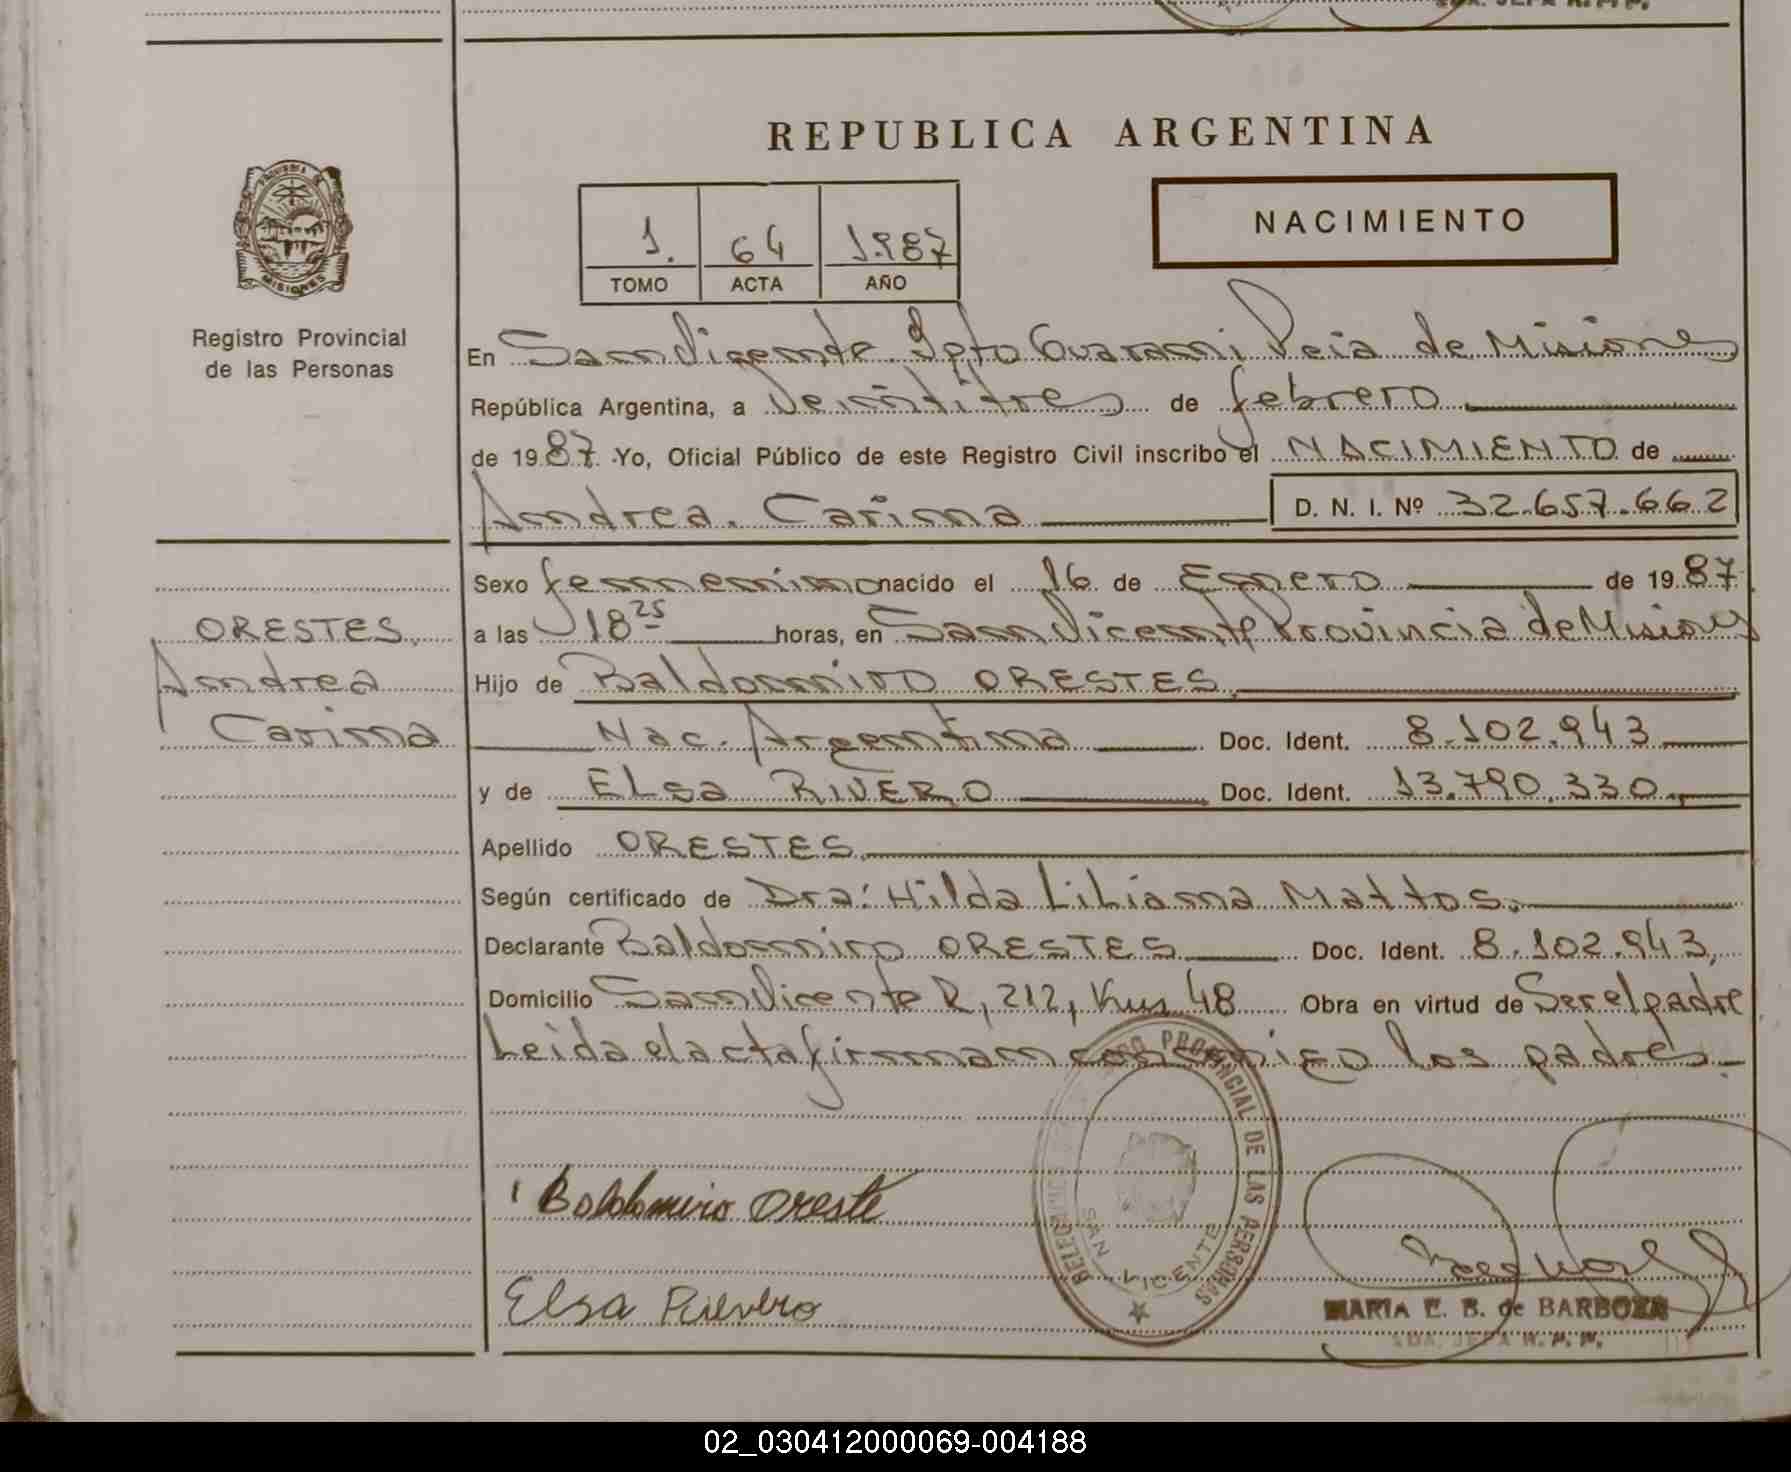 REPUBLICA ARGENTINA
PROVINCIA DE
MISIONES
Registro Provincial
de las Personas
1. 64 1.987
TOMO ACTA AÑO
NACIMIENTO
En San Vicente Dpto Guarani Pcia de Misiones
República Argentina, a Veintitres de febrero
de 1987. Yo, Oficial Público de este Registro Civil inscribo el NACIMIENTO de
Andrea. Carina D. N. I. Nº 32.657.662
Sexo femenino nacido el 16 de Enero de 1987
a las 18 25 horas, en San Vicente Provincia de Misiones
Hijo de Baldomiro ORESTES
Nac. Argentina Doc. Ident. 8.102.943
y de ELsa RIVERO Doc. Ident. 13.790.330
Apellido ORESTES
Según certificado de Dra: Hilda LiLiana Mattos.
Declarante Baldomiro ORESTES Doc. Ident. 8.102.943,
Domicilio San Vicente R, 212, Km 48 Obra en virtud de Ser el padre
Leida el acta firman conmigo los padres.
ORESTES,
Andrea
Carina
Baldomiro Oreste
Elsa Rivero
PROVINCIAL DE LAS PERSONAS
SAN VICENTE
MARIA E. B. de BARBOZA
JEFA R. P. P.
02_030412000069-004188